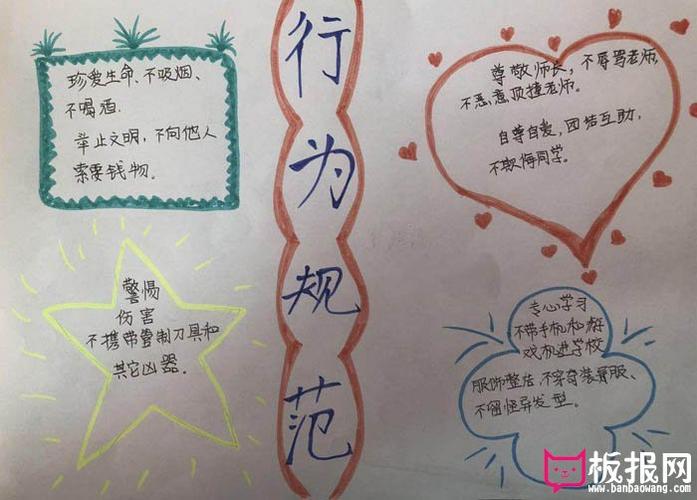 行为规范
珍爱生命、不吸烟、
不喝酒.
举止文明，不向他人
索要钱物.
尊敬师长，不辱骂老师，
不恶意顶撞老师。
自尊自爱，团结互助，
不欺侮同学。
警惕
伤害
不携带管制刀具和
其它凶器.
专心学习
不带手机和游
戏机进学校
服饰整洁，不穿奇装异服、
不留怪异发型。
板报网
www.banbaowang.com